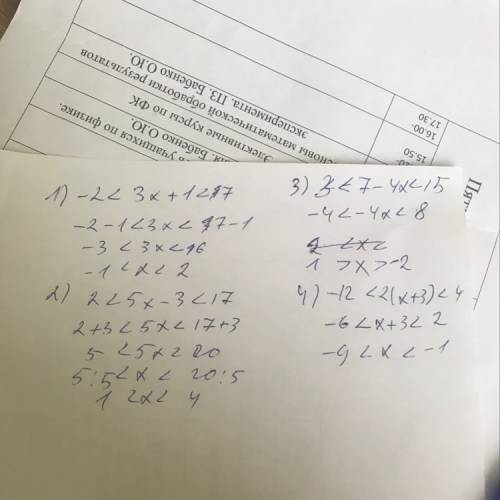 1) -2 < 3x + 1 < 17
-2 - 1 < 3x < 17 - 1
-3 < 3x < 16
-1 < x < 2
2) 2 < 5x - 3 < 17
2+3 < 5x < 17+3
5 < 5x < 20
5:5 < x < 20:5
1 < x < 4
3) 3 < 7 - 4x < 15
-4 < -4x < 8
1 > x > -2
4) -12 < 2(x+3) < 4
-6 < x+3 < 2
-9 < x < -1
16.00-
17.30
15.50
Пят
эксперимента. ПЗ. Бабенко О.Ю.
математической обработки результатов
Элективные курсы по ФК
Бабенко О.Ю.
учащихся по физике.